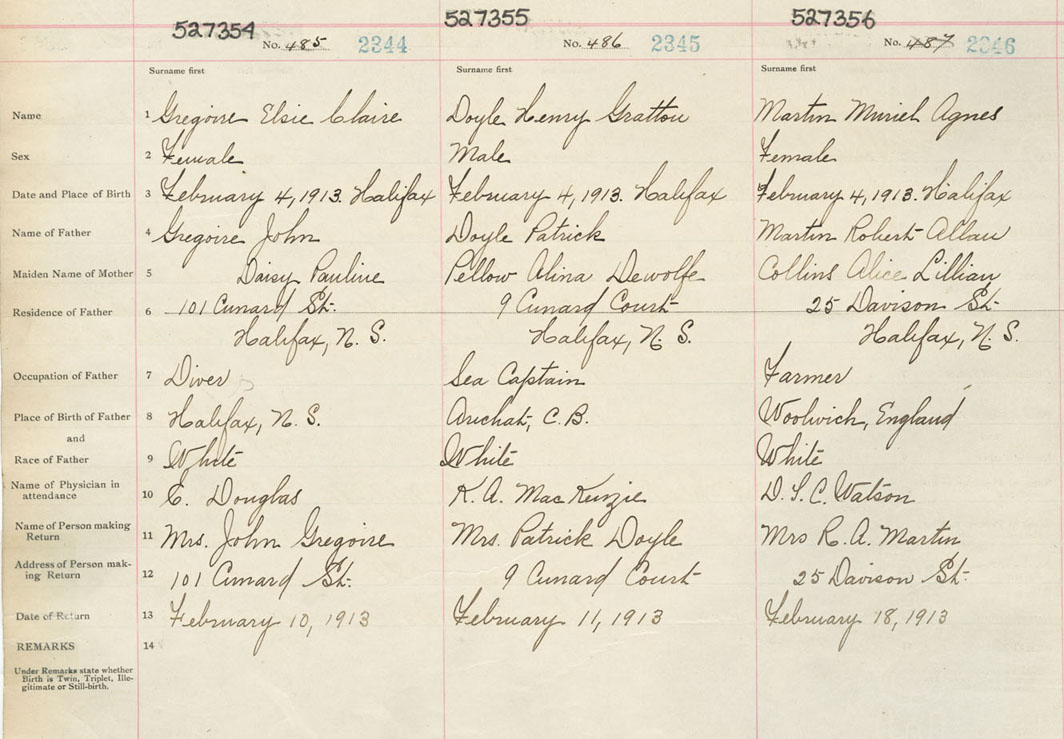 527354 527355 527356
No. 485 2344 No. 486 2345 No. 487 2346
Surname first Surname first Surname first
Name 1 Gregoire Elsie Claire Doyle Henry Grattou Martin Muriel Agnes
Sex 2 Female Male Female
Date and Place of Birth 3 February 4, 1913. Halifax February 4, 1913. Halifax February 4, 1913. Halifax
Name of Father 4 Gregoire John Doyle Patrick Martin Robert Allan
Maiden Name of Mother 5 Daisy Pauline Pellow Alina Dewolfe Collins Alice Lillian
Residence of Father 6 101 Cunard St. 9 Cunard Court 25 Davison St.
Halifax, N. S. Halifax, N. S. Halifax, N. S.
Occupation of Father 7 Diver Sea Captain Farmer
Place of Birth of Father 8 Halifax, N. S. Arichat, C. B. Woolwich, England
and
Race of Father 9 White White White
Name of Physician in
attendance 10 E. Douglas K. A. MacKenzie D. S. C. Watson
Name of Person making
Return 11 Mrs. John Gregoire Mrs. Patrick Doyle Mrs R. A. Martin
Address of Person mak-
ing Return 12 101 Cunard St. 9 Cunard Court 25 Davison St.
Date of Return 13 February 10, 1913 February 11, 1913 February 18, 1913
REMARKS 14
Under Remarks state whether
Birth is Twin, Triplet, Ille-
gitimate or Still-birth.